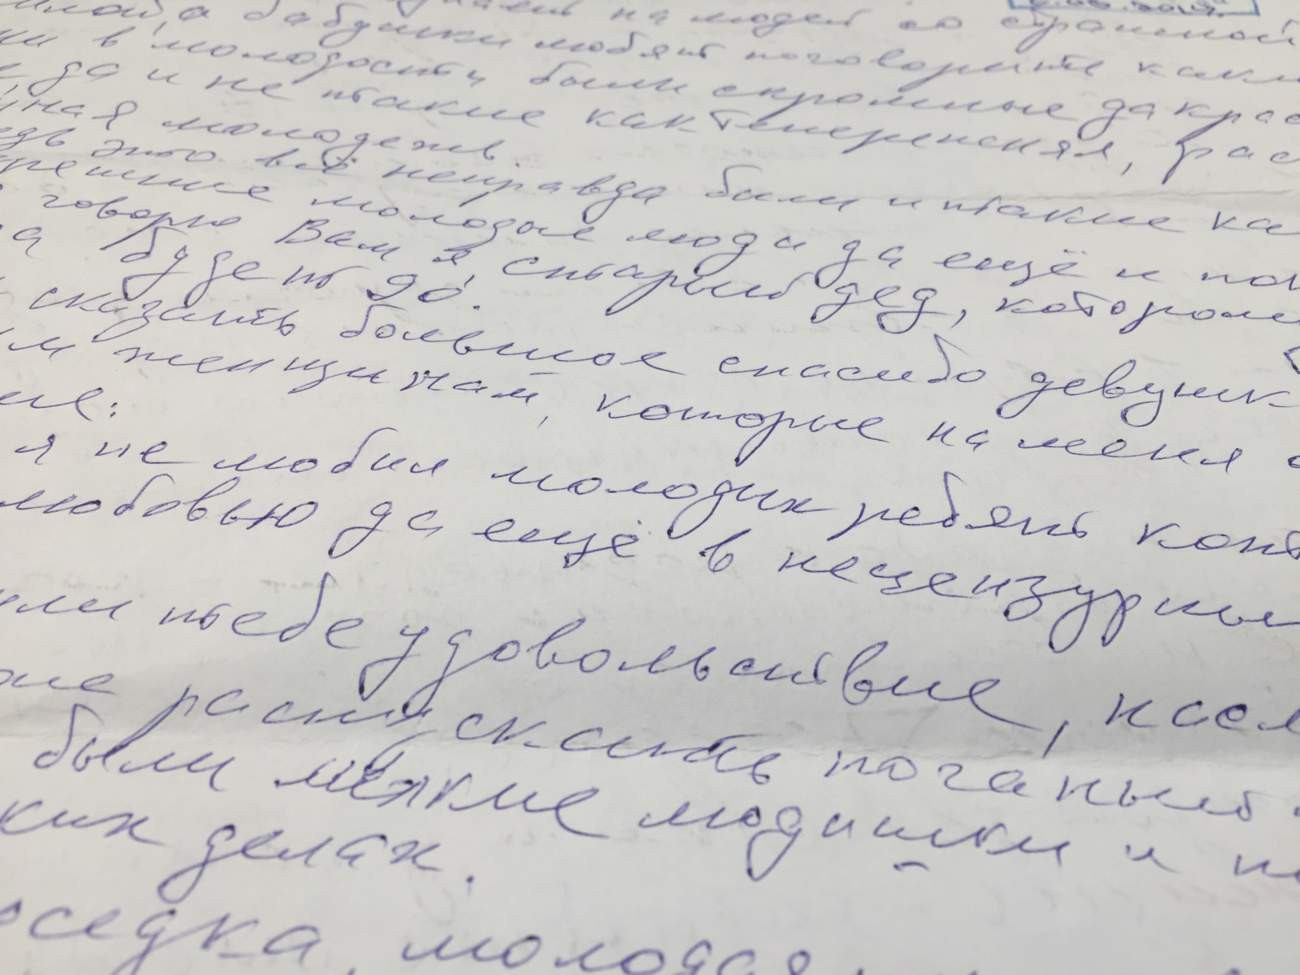 а бабушки любят поговорить как
в молодости были скромные да крас
да и не такие как теперешняя, рас
ная молодежь.
едь это всё неправда были и такие ка
грешные молодые люди да ещё и по
говорю Вам я, старый дед, которо
а будет 90.
сказать большое спасибо девушк
м женщинам, которые на меня
ые:
я не любил молодых ребят кот
любовью да ещё в нецензурны
или тебе удовольствие, нсол
же распускать поганый
были мелкие людишки и
ких делах.
оседка, молодая,